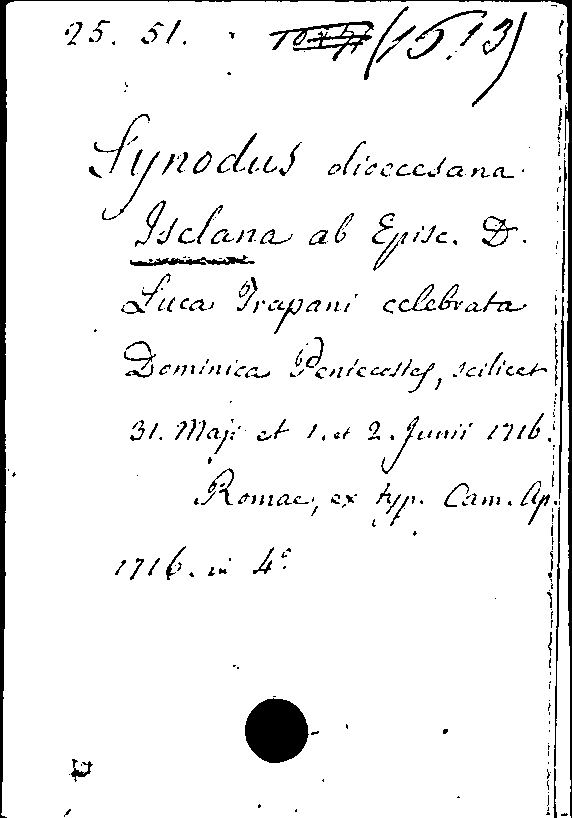 25. 51. (15.13)
Synodus dioecesana
Isclana ab Episc. D.
Luca Trapani celebrata
Dominica Pentecostes, scilicet
31. Maji et 1. et 2. Junii 1716.
Romae, ex typ. Cam. Ap.
1716. in 4°